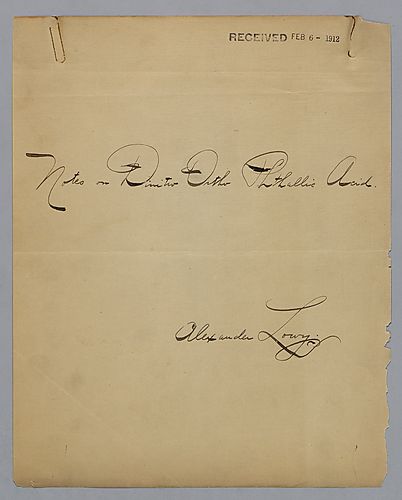 RECEIVED FEB 6 - 1912
Notes on Dinitro Ortho Phthallic Acid.
Alexander Lowy.